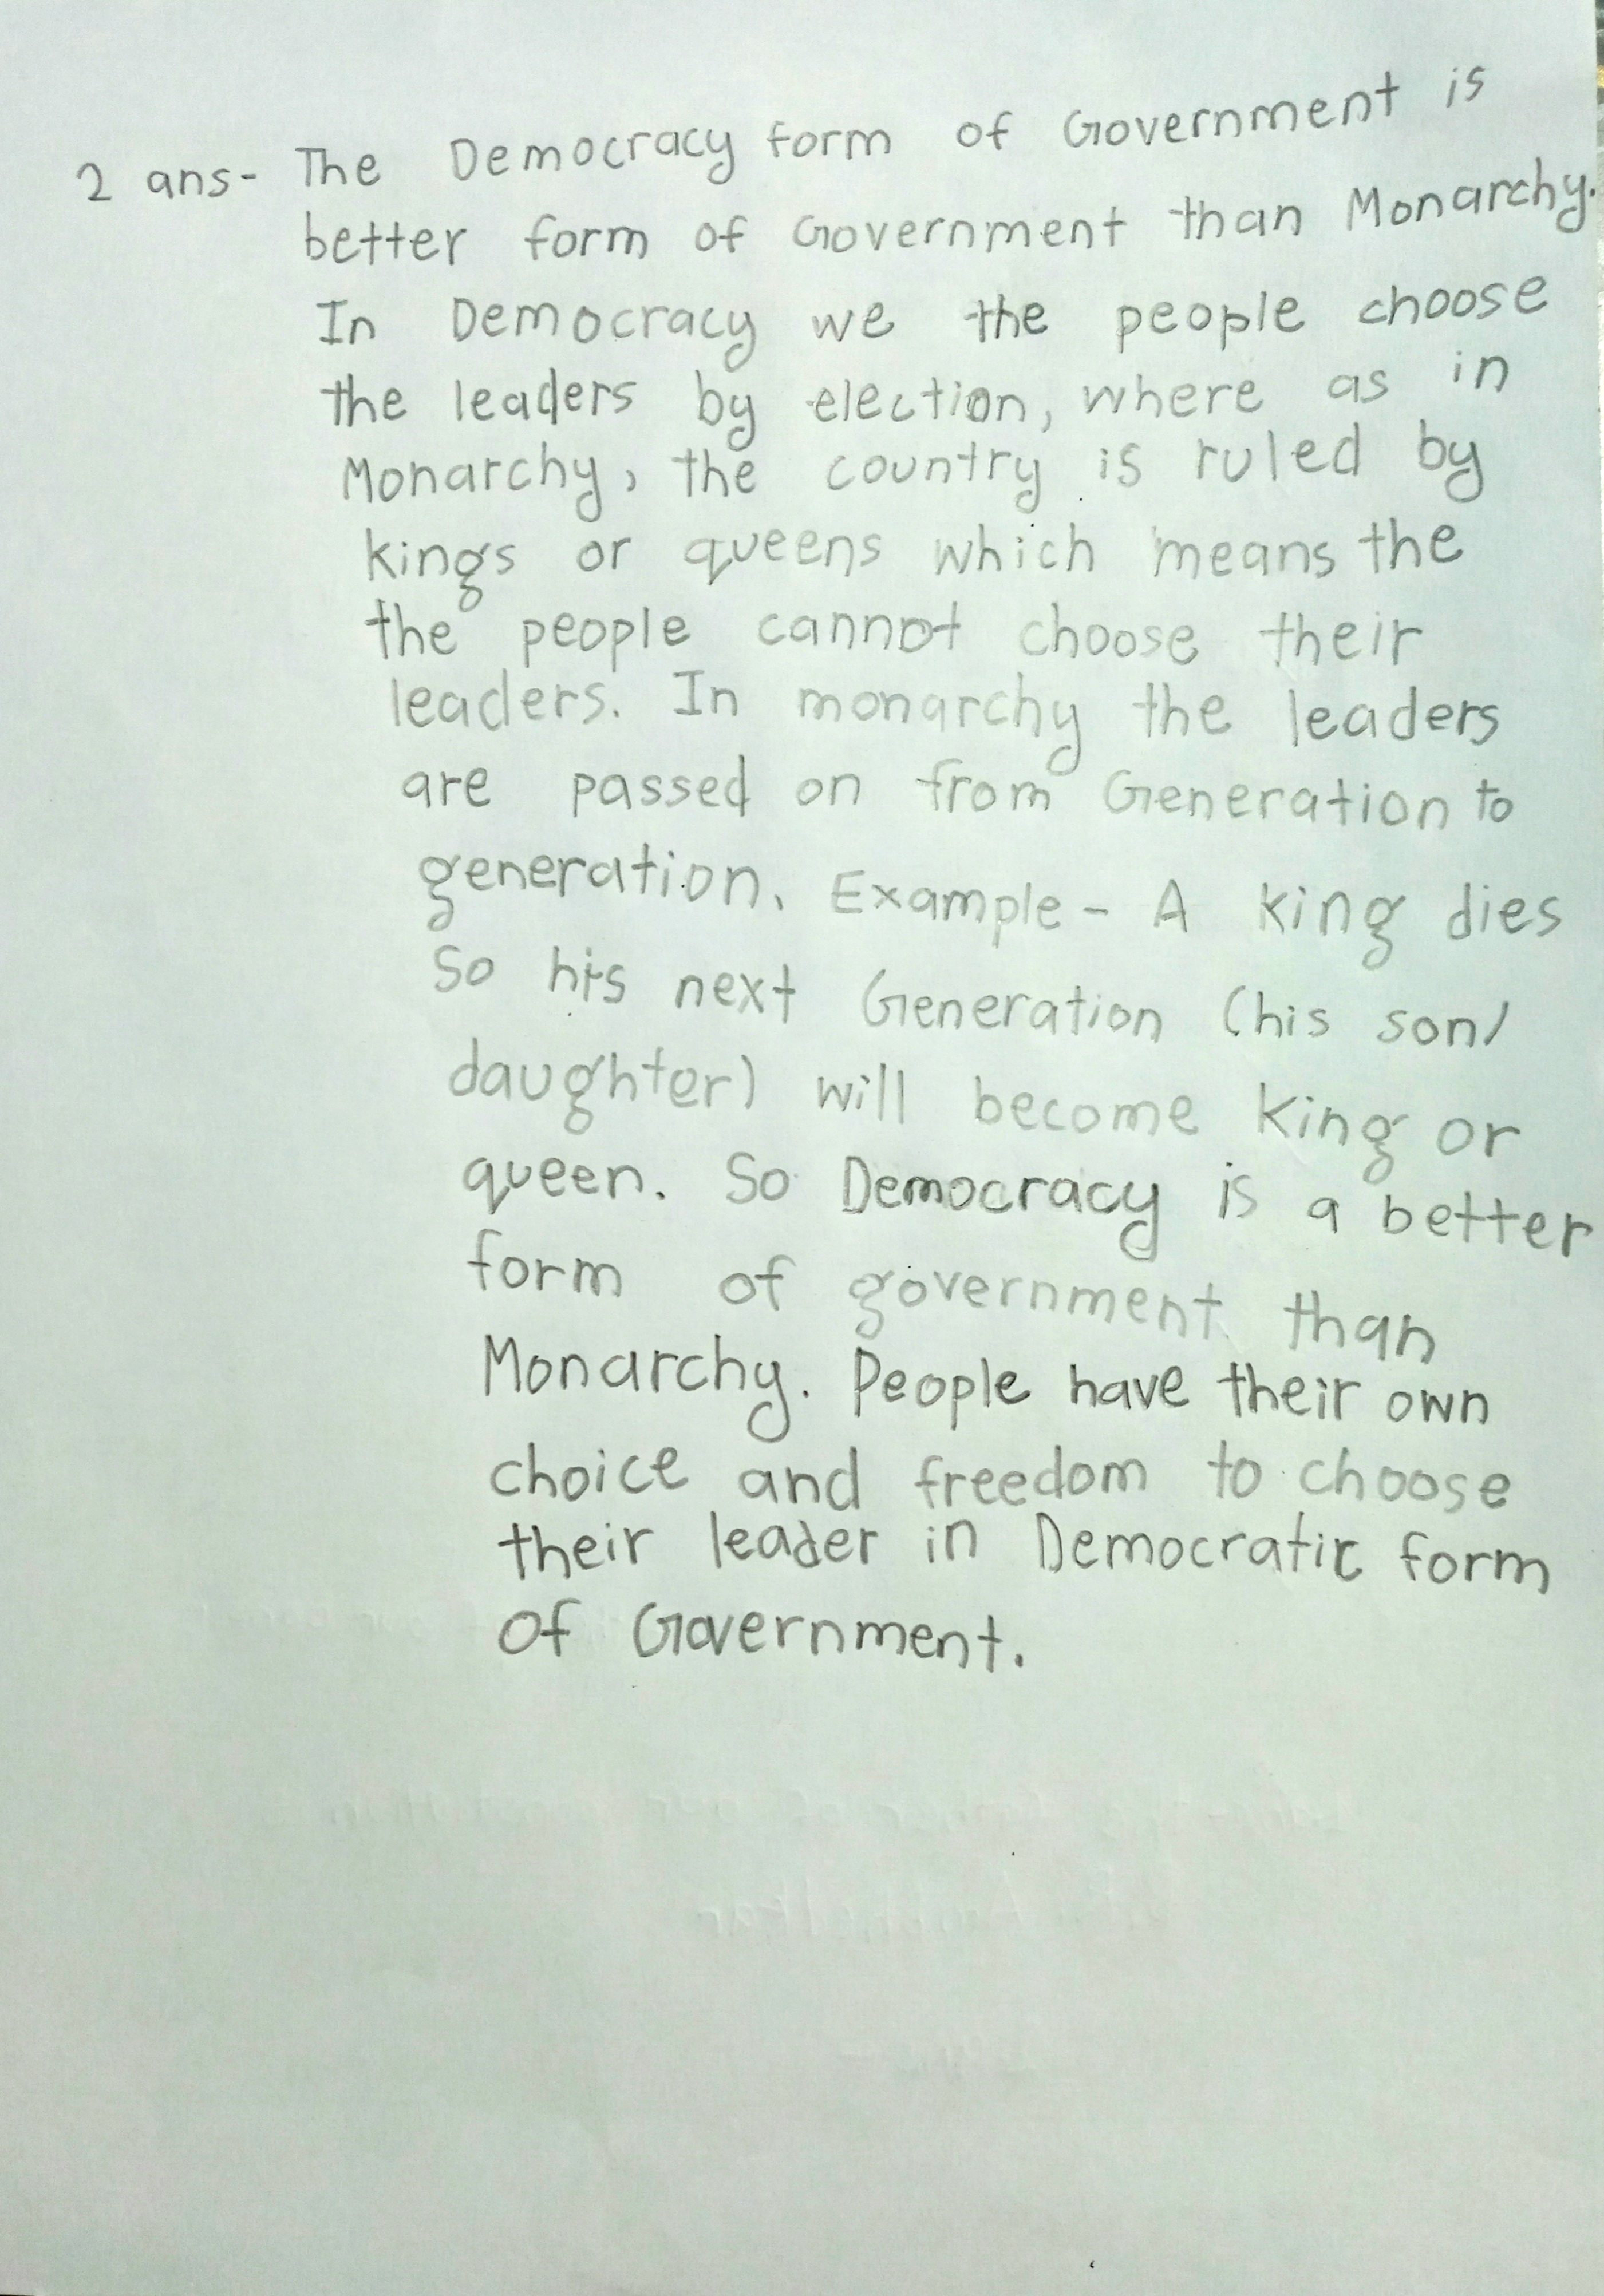 2 ans- The Democracy form of Government is
better form of Government than Monarchy.
In Democracy we the people choose
the leaders by election, where as in
Monarchy, the country is ruled by
kings or queens which means the
the people cannot choose their
leaders. In monarchy the leaders
are passed on from Generation to
generation. Example - A king dies
So his next Generation (his son/
daughter) will become king or
queen. So Democracy is a better
form of government than
Monarchy. People have their own
choice and freedom to choose
their leader in Democratic form
of Government.